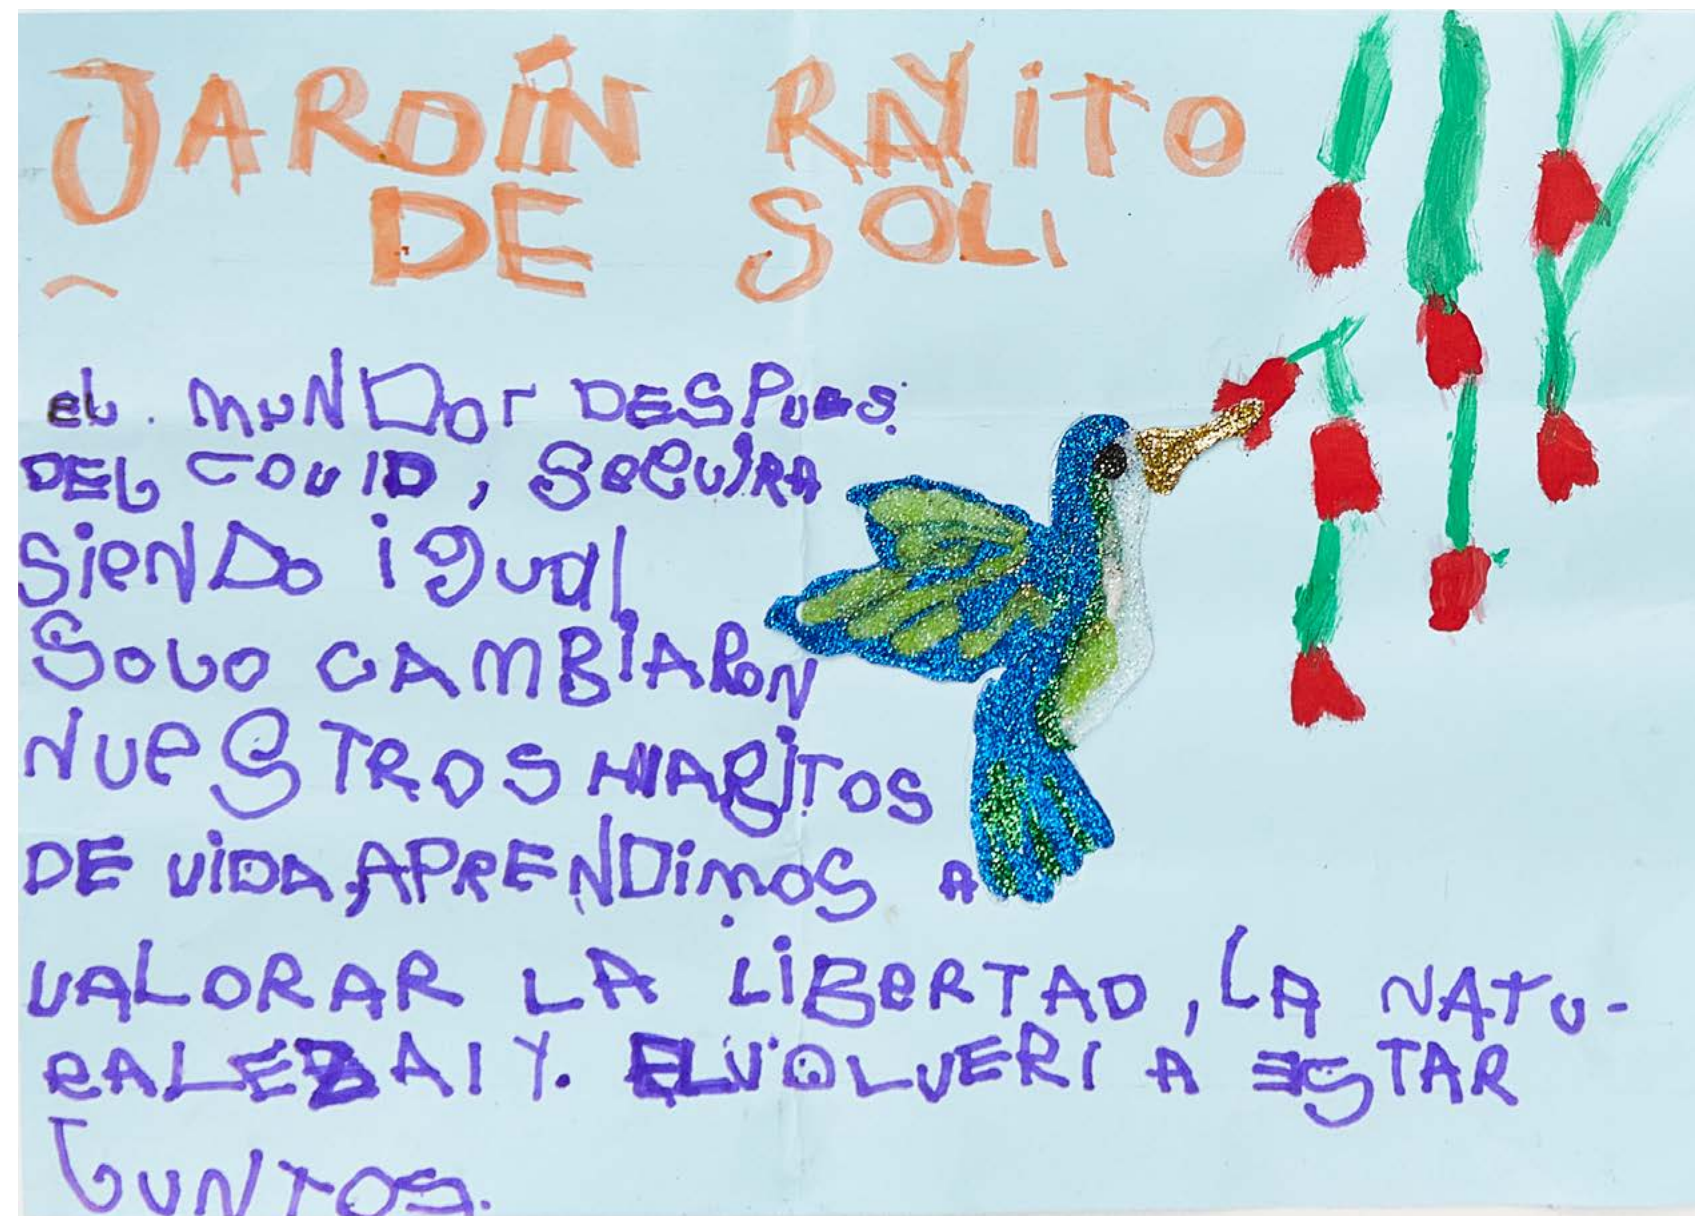 JARDÍN RAYITO
DE SOL
el. MUNDO DESPUES
DEL COVID, SeGUIRA
SieNDO igual
SOLO CAMBIARON
NUeSTROS HABITOS
DE VIDA, APRENDIMOS A
VALORAR LA LIBeRTAD, LA NATU-
RALEZA Y. EL VOLVER A ESTAR
JUNTOS.